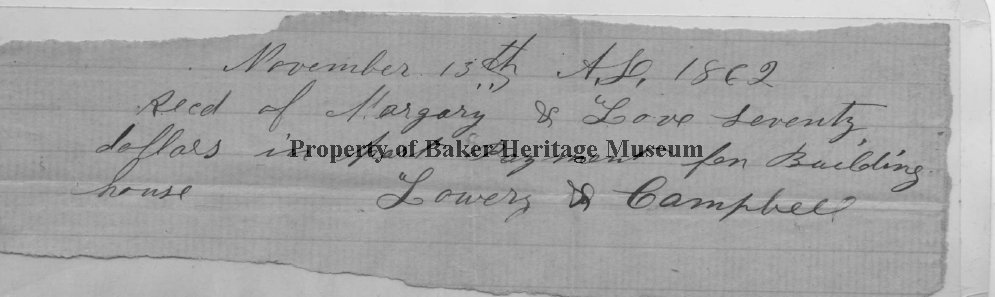 November 13th A.D. 1862
Recd of Margary & Love seventy
dollars in part payment for Building
house Lowery & Campbell
Property of Baker Heritage Museum